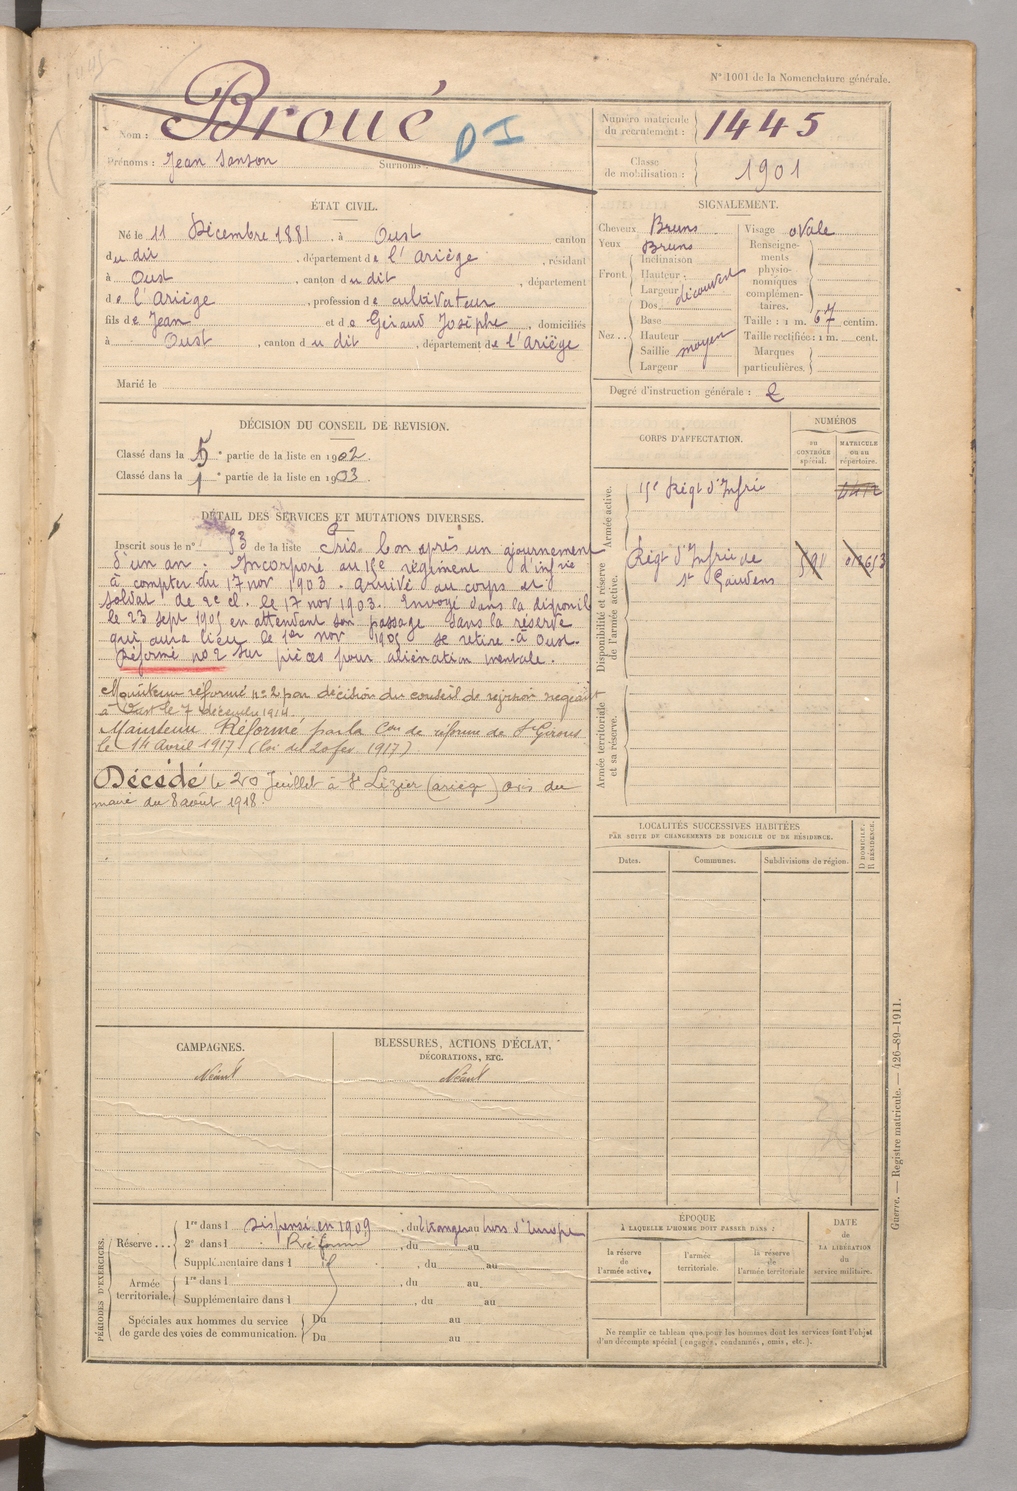 N° 1001 de la Nomenclature générale.
Nom : Broué
DI
Prénoms : Jean Sanson Surnoms :
Numéro matricule du recrutement : 1445
Classe de mobilisation : 1901
ÉTAT CIVIL.
Né le 11 Décembre 1881, à Oust canton
du dit, département de l'Ariège, résidant
à Oust, canton du dit, département
de l'Ariège, profession de cultivateur
fils de Jean et de Géraud Josèphe, domiciliés
à Oust, canton du dit, département de l'Ariège
Marié le
SIGNALEMENT.
Cheveux Bruns
Yeux Bruns
Front. Inclinaison
Hauteur :
Largeur découvert
Nez. Dos
Base
Hauteur
Saillie moyen
Largeur
Visage ovale
Renseignements physionomiques complémentaires.
Taille : 1 m. 67 centim.
Taille rectifiée : 1 m. cent.
Marques particulières.
Degré d'instruction générale : 2
DÉCISION DU CONSEIL DE REVISION.
Classé dans la 5e partie de la liste en 1902.
Classé dans la 1e partie de la liste en 1903.
CORPS D'AFFECTATION.
NUMÉROS
DU CONTRÔLE spécial.
MATRICULE ou au répertoire.
Armée active.
15e Régt d'Infrie
Disponibilité et réserve de l'armée active.
Régt d'Infrie de
St Gaudens
Armée territoriale et sa réserve.
DÉTAIL DES SERVICES ET MUTATIONS DIVERSES.
Inscrit sous le n° 53 de la liste Pris bon après un ajournement
d'un an. Incorporé au 15e régiment d'infrie
à compter du 17 nov 1903. Arrivé au corps et
soldat de 2e cl. le 17 nov 1903. Envoyé dans la disponib
le 23 sept 1905 en attendant son passage dans la réserve
qui aura lieu le 1er nov 1905 se retire à Oust.
Réformé no 2 sur pièces pour aliénation mentale.
Maintenu réformé n° 2 par décision du conseil de révision siégeant
à Oust le 7 décembre 1914
Maintenu Réformé par la Com de réforme de St Girons
le 14 avril 1917 (loi du 20 fev 1917)
Décédé le 20 Juillet à St Lizier (ariège) avis du
maire du 8 août 1918.
LOCALITÉS SUCCESSIVES HABITÉES
PAR SUITE DE CHANGEMENTS DE DOMICILE OU DE RÉSIDENCE.
Dates. Communes. Subdivisions de région.
D DOMICILE. R RÉSIDENCE.
CAMPAGNES.
Néant
BLESSURES, ACTIONS D'ÉCLAT,
DÉCORATIONS, ETC.
Néant
PÉRIODES D'EXERCICES.
Réserve... 1re dans l dispensé en 1909, du Étranger au hors d'Europe
2e dans l Réformé, du au
Supplémentaire dans l, du au
Armée territoriale. 1re dans l, du au
Supplémentaire dans l, du au
Spéciales aux hommes du service de garde des voies de communication. Du au
Du au
ÉPOQUE
À LAQUELLE L'HOMME DOIT PASSER DANS :
la réserve de l'armée active.
l'armée territoriale.
la réserve de l'armée territoriale
DATE de LA LIBÉRATION du service militaire.
Ne remplir ce tableau que pour les hommes dont les services font l'objet
d'un décompte spécial (engagés, condamnés, omis, etc.).
Guerre. — Registre matricule. — 426-89-1911.